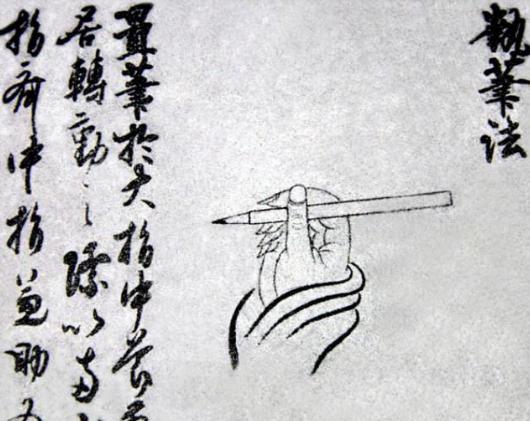 執筆法
置筆於大指中節前
居轉動之際以
指齊中指兼助為